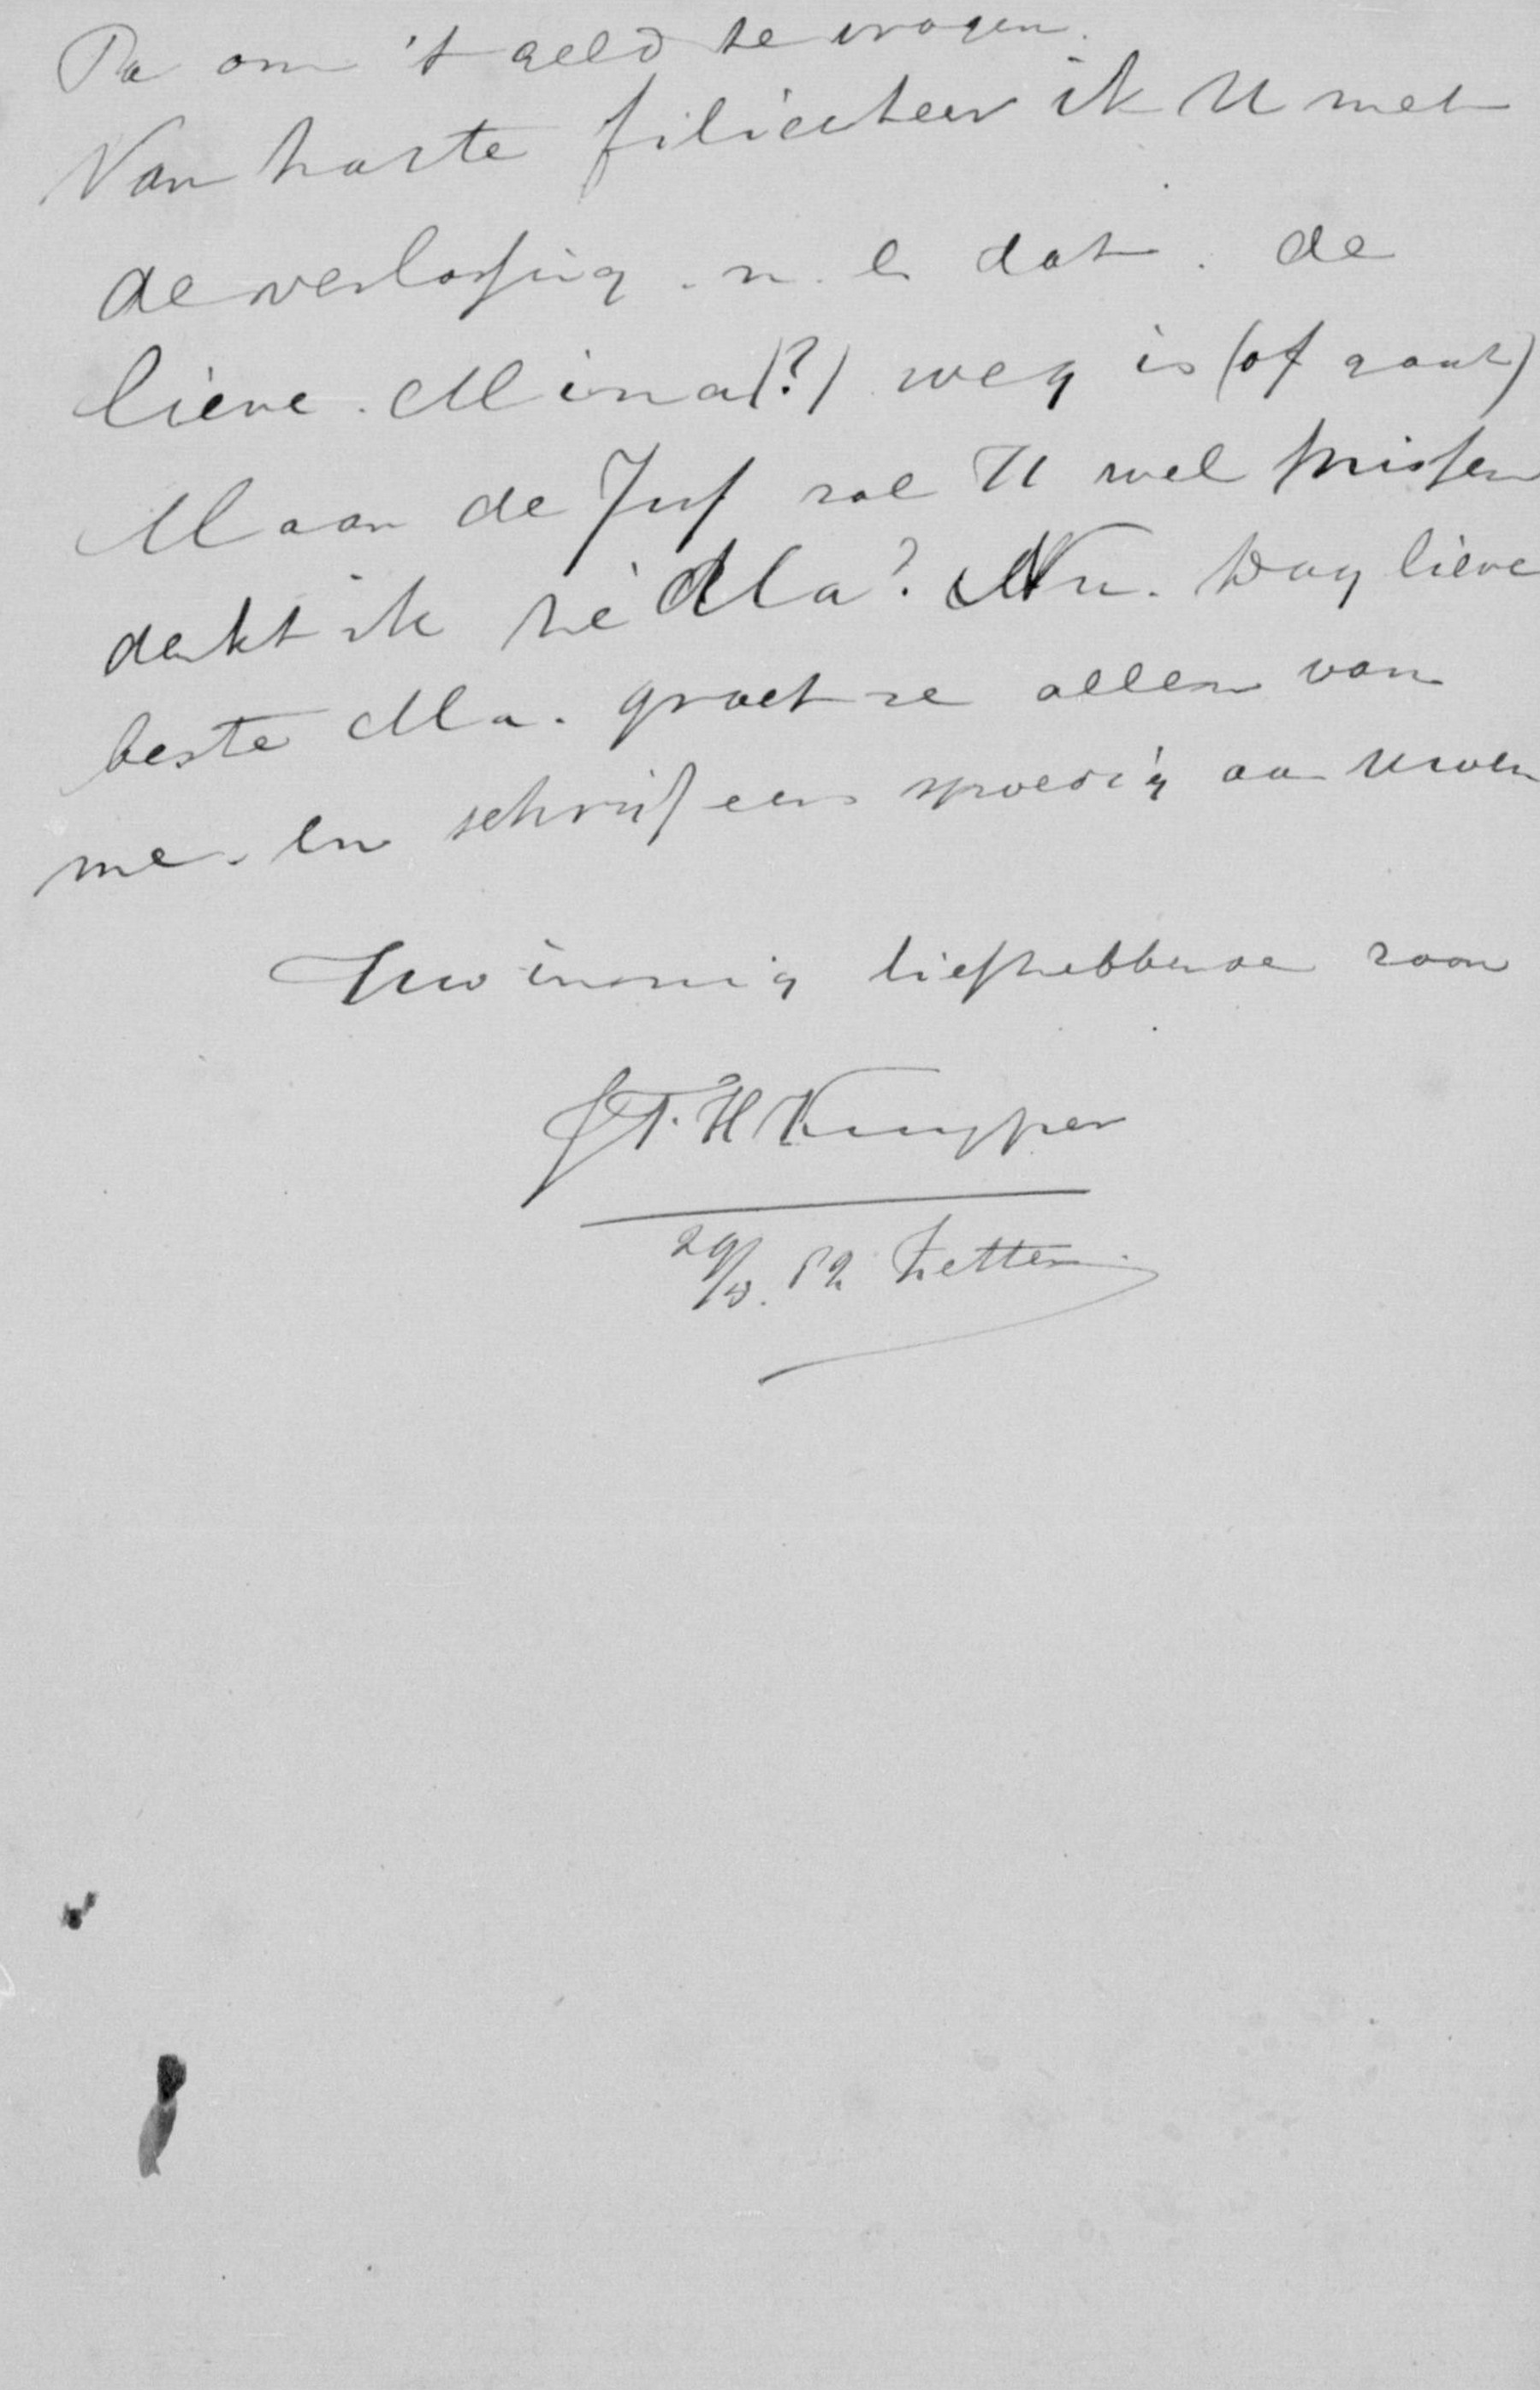 Pa om 't geld te vragen.
Van harte filiciteer ik U met
de verlossing . n. l. dat . de
lieve . Mina (?) weg is (of gaat)
Maar de Juf zal U wel missen
denkt ik hè Ma? Nu. Dag lieve
beste Ma. groet ze allen van
me. en schrijf eens spoedig aan Uwen
Uw innig liefhebbende zoon
H. H Kuyper
29/3. 82 Zetten.